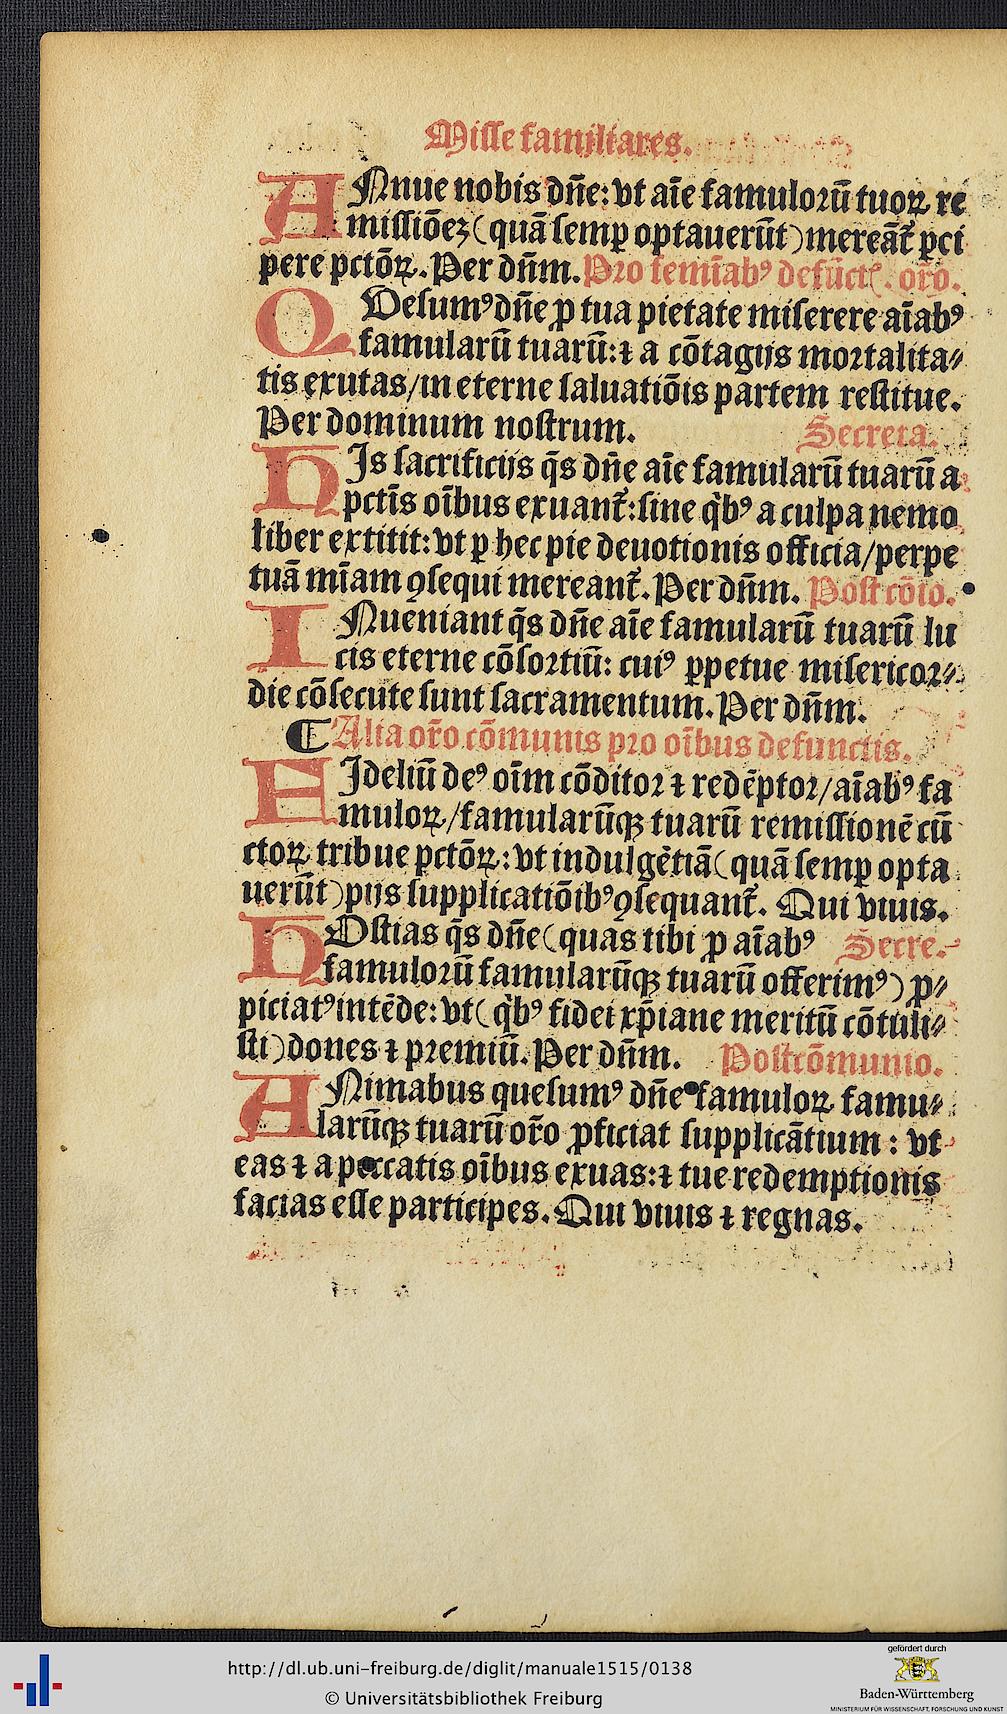 Misse familiares.
ANnue nobis dn̄e: vt aīe famuloꝛū tuoꝝ re
missiōeꝫ (quā semꝑ optauerūt) mereāt᷑ ꝑci
pere pctōꝝ. Per dn̄m. Pro femīabꝰ defūct. or̄o.
QUesumꝰ dn̄e ꝓ tua pietate miserere aīabꝰ
famularū tuarū: ⁊ a cōtagijs moꝛtalita⸗
tis exutas/in eterne saluatiōis partem restitue.
Per dominum nostrum. Secreta.
HIs sacrificijs q̄s dn̄e aīe famularū tuarū a
pctīs oībus exuant᷑: sine qͥbꝰ a culpa nemo
liber extitit: vt ꝑ hec pie deuotionis officia/perpe
tuā mīam ꝯsequi mereant᷑. Per dn̄m. Post cōio.
INueniant q̄s dn̄e aīe famularū tuarū lu
cis eterne cōsoꝛtiū: cuiꝰ ꝑpetue misericoꝛ⸗
die cōsecute sunt sacramentum. Per dn̄m.
¶ Alia or̄o cōmunis pꝛo oībus defunctis.
FIdeliū deꝰ oīm cōditoꝛ ⁊ redēptoꝛ/aīabꝰ fa
muloꝝ/famularūqꝫ tuarū remissionē cū
ctoꝝ tribue pctōꝝ: vt indulgētiā (quā semꝑ opta
uerūt) pijs supplicatiōibꝰ ꝯsequant᷑. Qui viuis.
HOstias q̄s dn̄e (quas tibi ꝓ aīabꝰ Secre.
famuloꝛū famularūqꝫ tuarū offerimꝰ) ꝓ⸗
piciatꝰ intēde: vt (qͥbꝰ fidei xp̄iane meritū cōtuli⸗
sti) dones ⁊ pꝛemiū. Per dn̄m. Postcōmunio.
ANimabus quesumꝰ dn̄e famuloꝝ famu⸗
larūqꝫ tuarū or̄o ꝓficiat supplicātium: vt
eas ⁊ a peccatis oībus exuas: ⁊ tue redemptionis
facias esse participes. Qui viuis ⁊ regnas.
http://dl.ub.uni-freiburg.de/diglit/manuale1515/0138
© Universitätsbibliothek Freiburg
gefördert durch
Baden-Württemberg
MINISTERIUM FÜR WISSENSCHAFT, FORSCHUNG UND KUNST